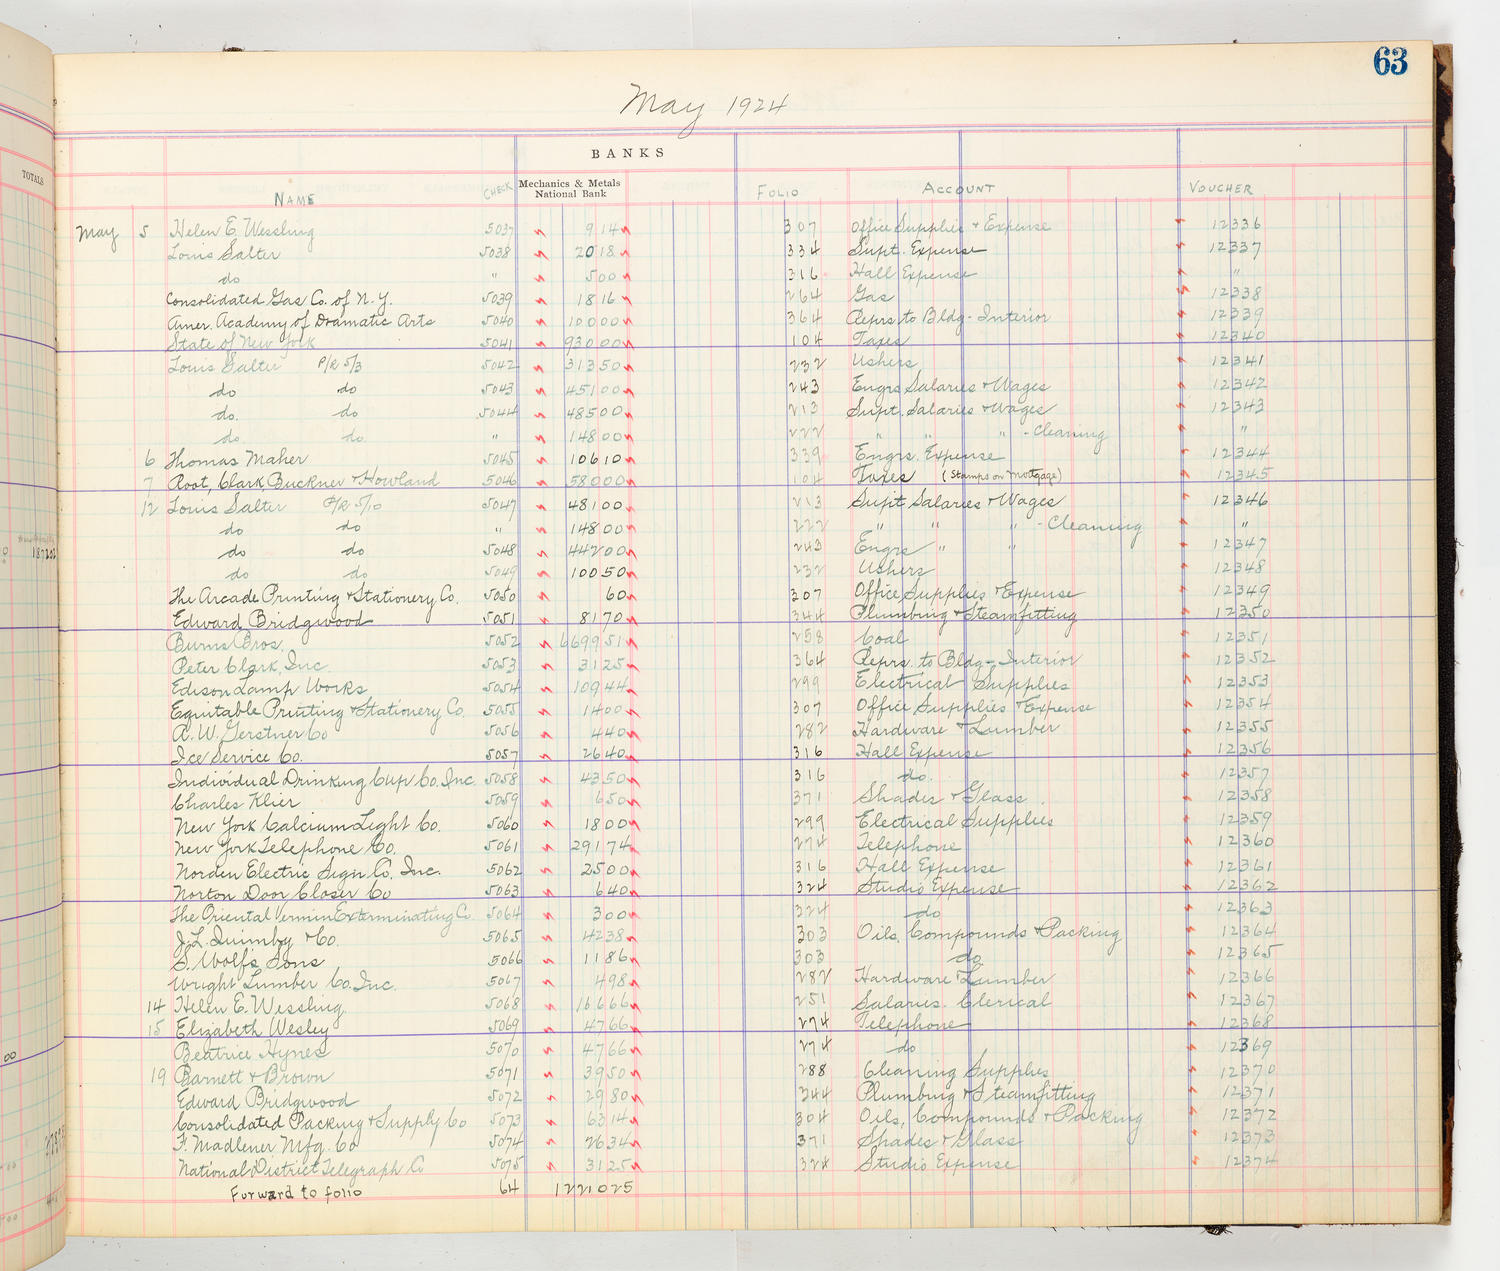 63
May 1924
TOTALS
BANKS
NAME CHECK Mechanics & Metals National Bank FOLIO ACCOUNT VOUCHER
May 5 Helen E. Wessling 5037 9 14 307 Office Supplies & Expense 12336
Louis Salter 5038 20 18 334 Supt. Expense 12337
do " 5 00 316 Hall Expense "
Consolidated Gas Co. of N.Y. 5039 18 16 264 Gas 12338
Amer. Academy of Dramatic Arts 5040 100 00 364 Reprs to Bldg - Interior 12339
State of New York 5041 930 00 104 Taxes 12340
Louis Salter P/R 5/3 5042 313 50 232 Ushers 12341
do do 5043 451 00 243 Engrs Salaries & Wages 12342
do. do 5044 485 00 213 Supt. Salaries & Wages 12343
do do " 148 00 222 " " " - Cleaning "
6 Thomas Maher 5045 106 10 339 Engrs. Expense 12344
7 Root, Clark Buckner & Howland 5046 580 00 104 Taxes (Stamps on Mortgage) 12345
12 Louis Salter P/R 5/10 5047 481 00 213 Supt Salaries & Wages 12346
do do " 148 00 222 " " " - Cleaning "
do do 5048 442 00 243 Engrs " " 12347
do do 5049 100 50 232 Ushers 12348
The Arcade Printing & Stationery Co. 5050 60 307 Office Supplies & Expense 12349
Edward Bridgwood 5051 81 70 344 Plumbing & Steamfitting 12350
Burns Bros. 5052 6699 51 258 Coal 12351
Peter Clark, Inc. 5053 31 25 364 Reprs. to Bldg - Interior 12352
Edison Lamp Works 5054 109 44 299 Electrical Supplies 12353
Equitable Printing & Stationery Co. 5055 14 00 307 Office Supplies & Expense 12354
A. W. Gerstner Co 5056 4 40 282 Hardware & Lumber 12355
Ice Service Co. 5057 26 40 316 Hall Expense 12356
Individual Drinking Cup Co. Inc. 5058 43 50 316 do. 12357
Charles Klier 5059 6 50 371 Shades & Glass 12358
New York Calcium Light Co. 5060 18 00 299 Electrical Supplies 12359
New York Telephone Co. 5061 291 74 274 Telephone 12360
Norden Electric Sign Co, Inc. 5062 25 00 316 Hall Expense 12361
Norton Door Closer Co 5063 6 40 324 Studio Expense 12362
The Oriental Vermin Exterminating Co. 5064 3 00 324 do 12363
J. L. Quimby & Co. 5065 42 38 303 Oils, Compounds & Packing 12364
S. Wolf's Sons 5066 11 86 303 do 12365
Wright Lumber Co. Inc. 5067 4 98 282 Hardware & Lumber 12366
14 Helen E. Wessling 5068 166 66 251 Salaries. Clerical 12367
15 Elizabeth Wesley 5069 47 66 274 Telephone 12368
Beatrice Hynes 5070 47 66 274 do 12369
19 Barnett & Brown 5071 39 50 288 Cleaning Supplies 12370
Edward Bridgwood 5072 29 80 344 Plumbing & Steamfitting 12371
Consolidated Packing & Supply Co 5073 63 14 304 Oils, Compounds & Packing 12372
F. Madlener Mfg. Co 5074 26 34 371 Shades & Glass 12373
National District Telegraph Co 5075 31 25 324 Studio Expense 12374
Forward to folio 64 12210 25